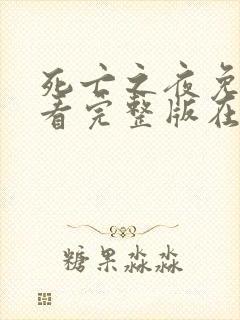 死亡之夜免
看完整版在
糖果淼淼